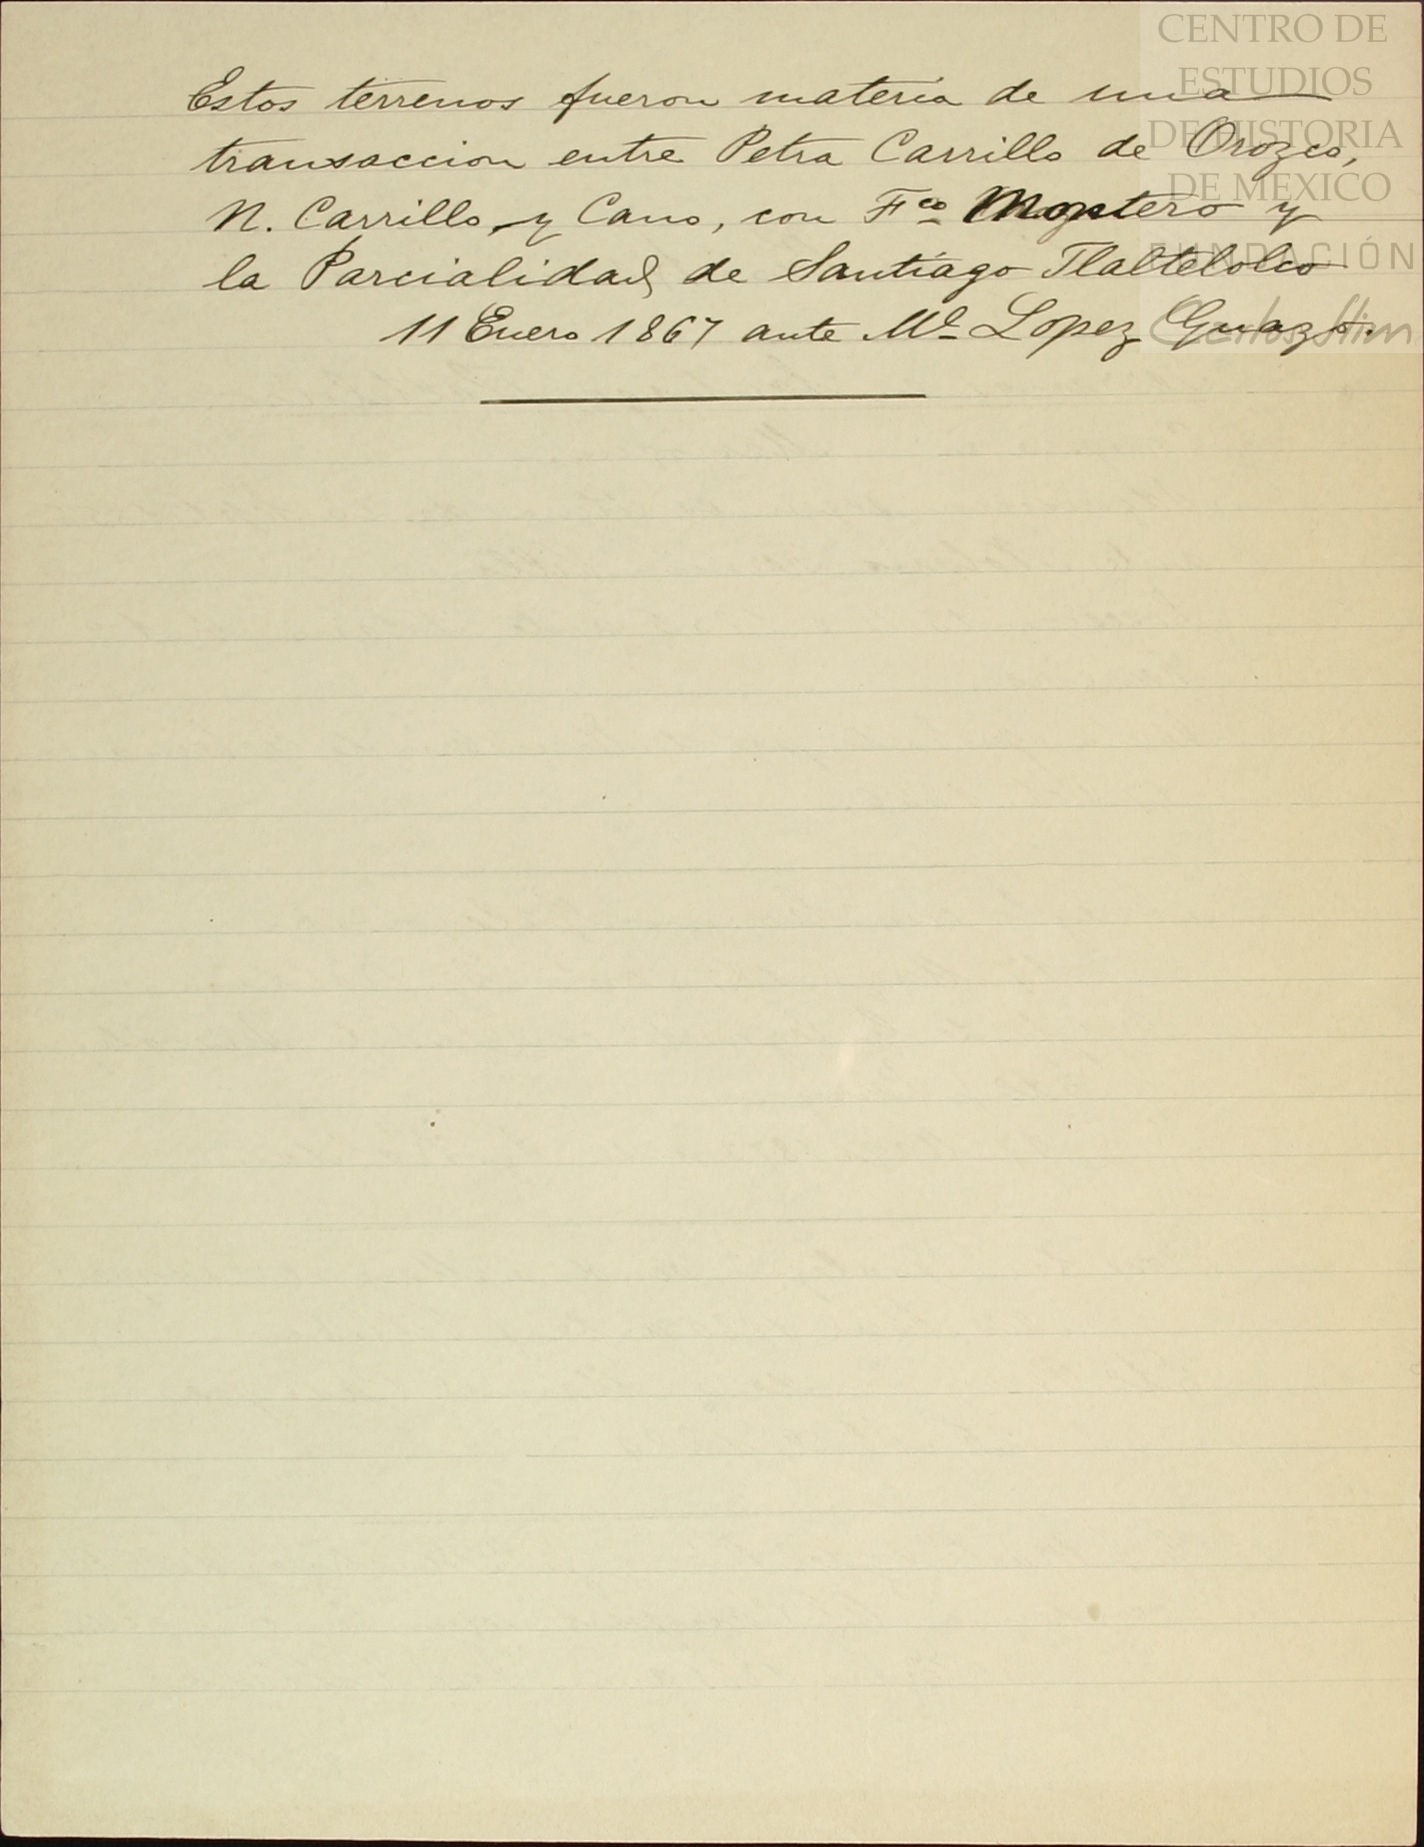 CENTRO DE
ESTUDIOS
DE HISTORIA
DE MEXICO
FUNDACIÓN
Carlos Slim
Estos terrenos fueron materia de una
transaccion entre Petra Carrillo de Orozco,
N. Carrillo y Cano, con Fco Montero y
la Parcialidad de Santiago Tlaltelolco
11 Enero 1867 ante Ml Lopez Guazo.